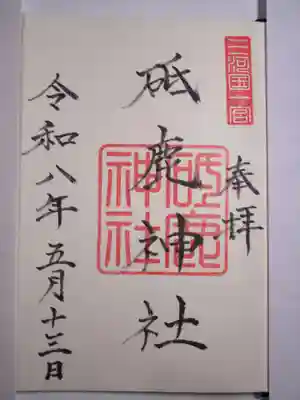 三河国一宮
奉拝
砥鹿神社
砥鹿神社
令和八年五月十三日